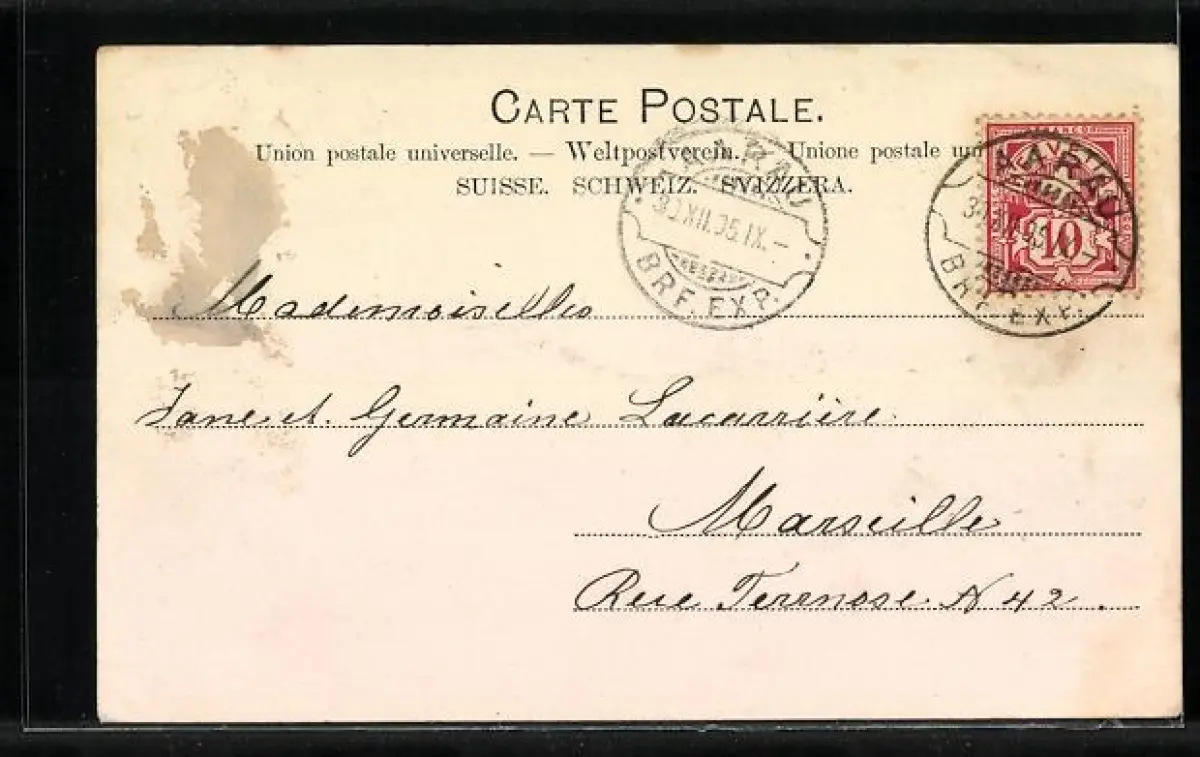 CARTE POSTALE.
Union postale universelle. — Weltpostverein. — Unione postale un
SUISSE. SCHWEIZ. SVIZZERA.
AARAU
BRF. EXP.
AARAU
BRF. EXP.
FRANCO
10
Mademoiselles
Jane et Germaine Lacarrière
Marseille
Rue Terrnose N 42.